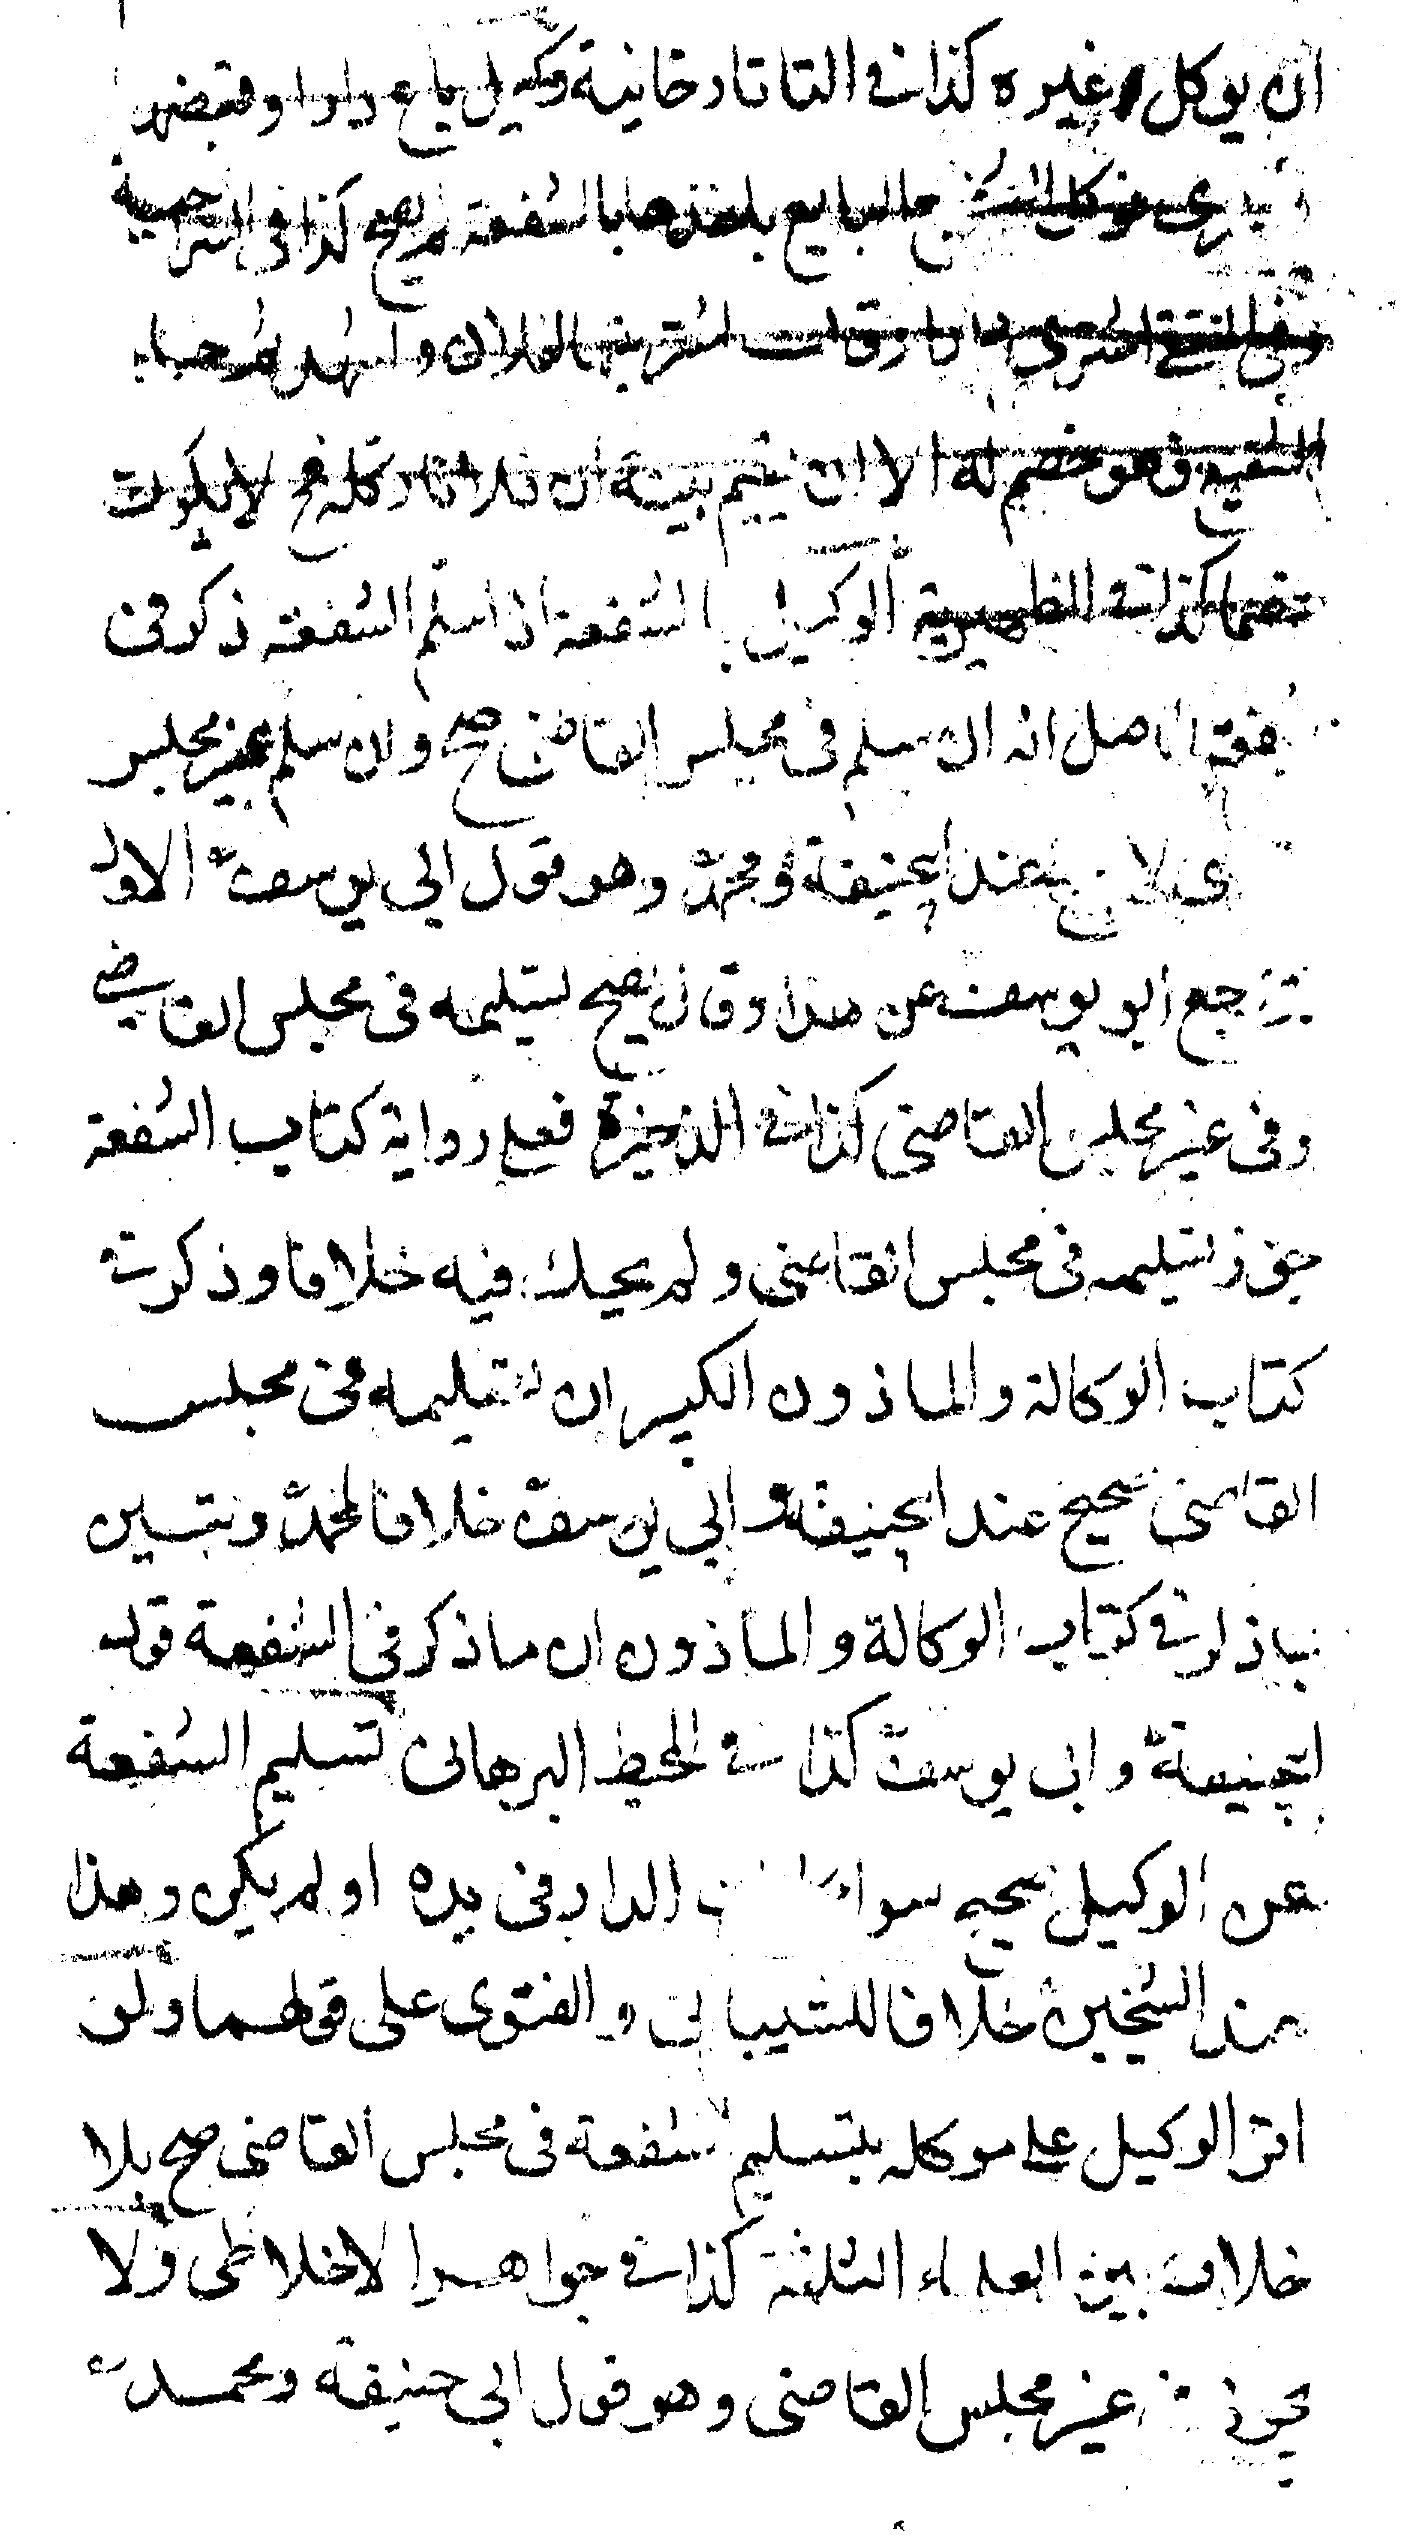 ان يوكل غيره كذا في التاتارخانية وكيل باع دارا وقبضها
فوكل المشتري البايع باخذها بالشفعة لم يصح كذا في السراجية
اشتريتها لفلان واشهد ثم جاء
الشفيع فهو خصم له الا ان يقيم بينة ان فلانا وكله فح لا يكون
خصما كذا في الظهيرية الوكيل بالشفعة اذا سلم الشفعة ذكر في
شفعة الاصل انه ان سلم في مجلس القاضي صح وان سلم في غير مجلس
لا يصح عند ابيحنيفة ومحمد وهو قول ابي يوسف الاول
ثم رجع ابو يوسف عن هذا وقال يصح تسليمه في مجلس القاضي
وفي غير مجلس القاضي كذا في الذخيرة فعلى رواية كتاب الشفعة
جوز تسليمه في مجلس القاضي ولم يحك فيه خلافا وذكر في
كتاب الوكالة والماذون الكبير ان تسليمه في مجلس
القاضي صحيح عند ابيحنيفة وابي يوسف خلافا لمحمد وتبين
بما ذكر في كتاب الوكالة والماذون ان ما ذكر في الشفعة قول
ابيحنيفة وابي يوسف كذا في المحيط البرهاني تسليم الشفعة
من الوكيل صحيح سواء كانت الدار في يده او لم يكن وهذا
عند الشيخين خلافا للشيباني والفتوى على قولهما ولو
اقر الوكيل على موكله بتسليم الشفعة في مجلس القاضي صح بلا
خلاف بين العلماء الثلثة كذا في جواهر الاخلاطي ولا
يجوز في غير مجلس القاضي وهو قول ابي حنيفة ومحمد